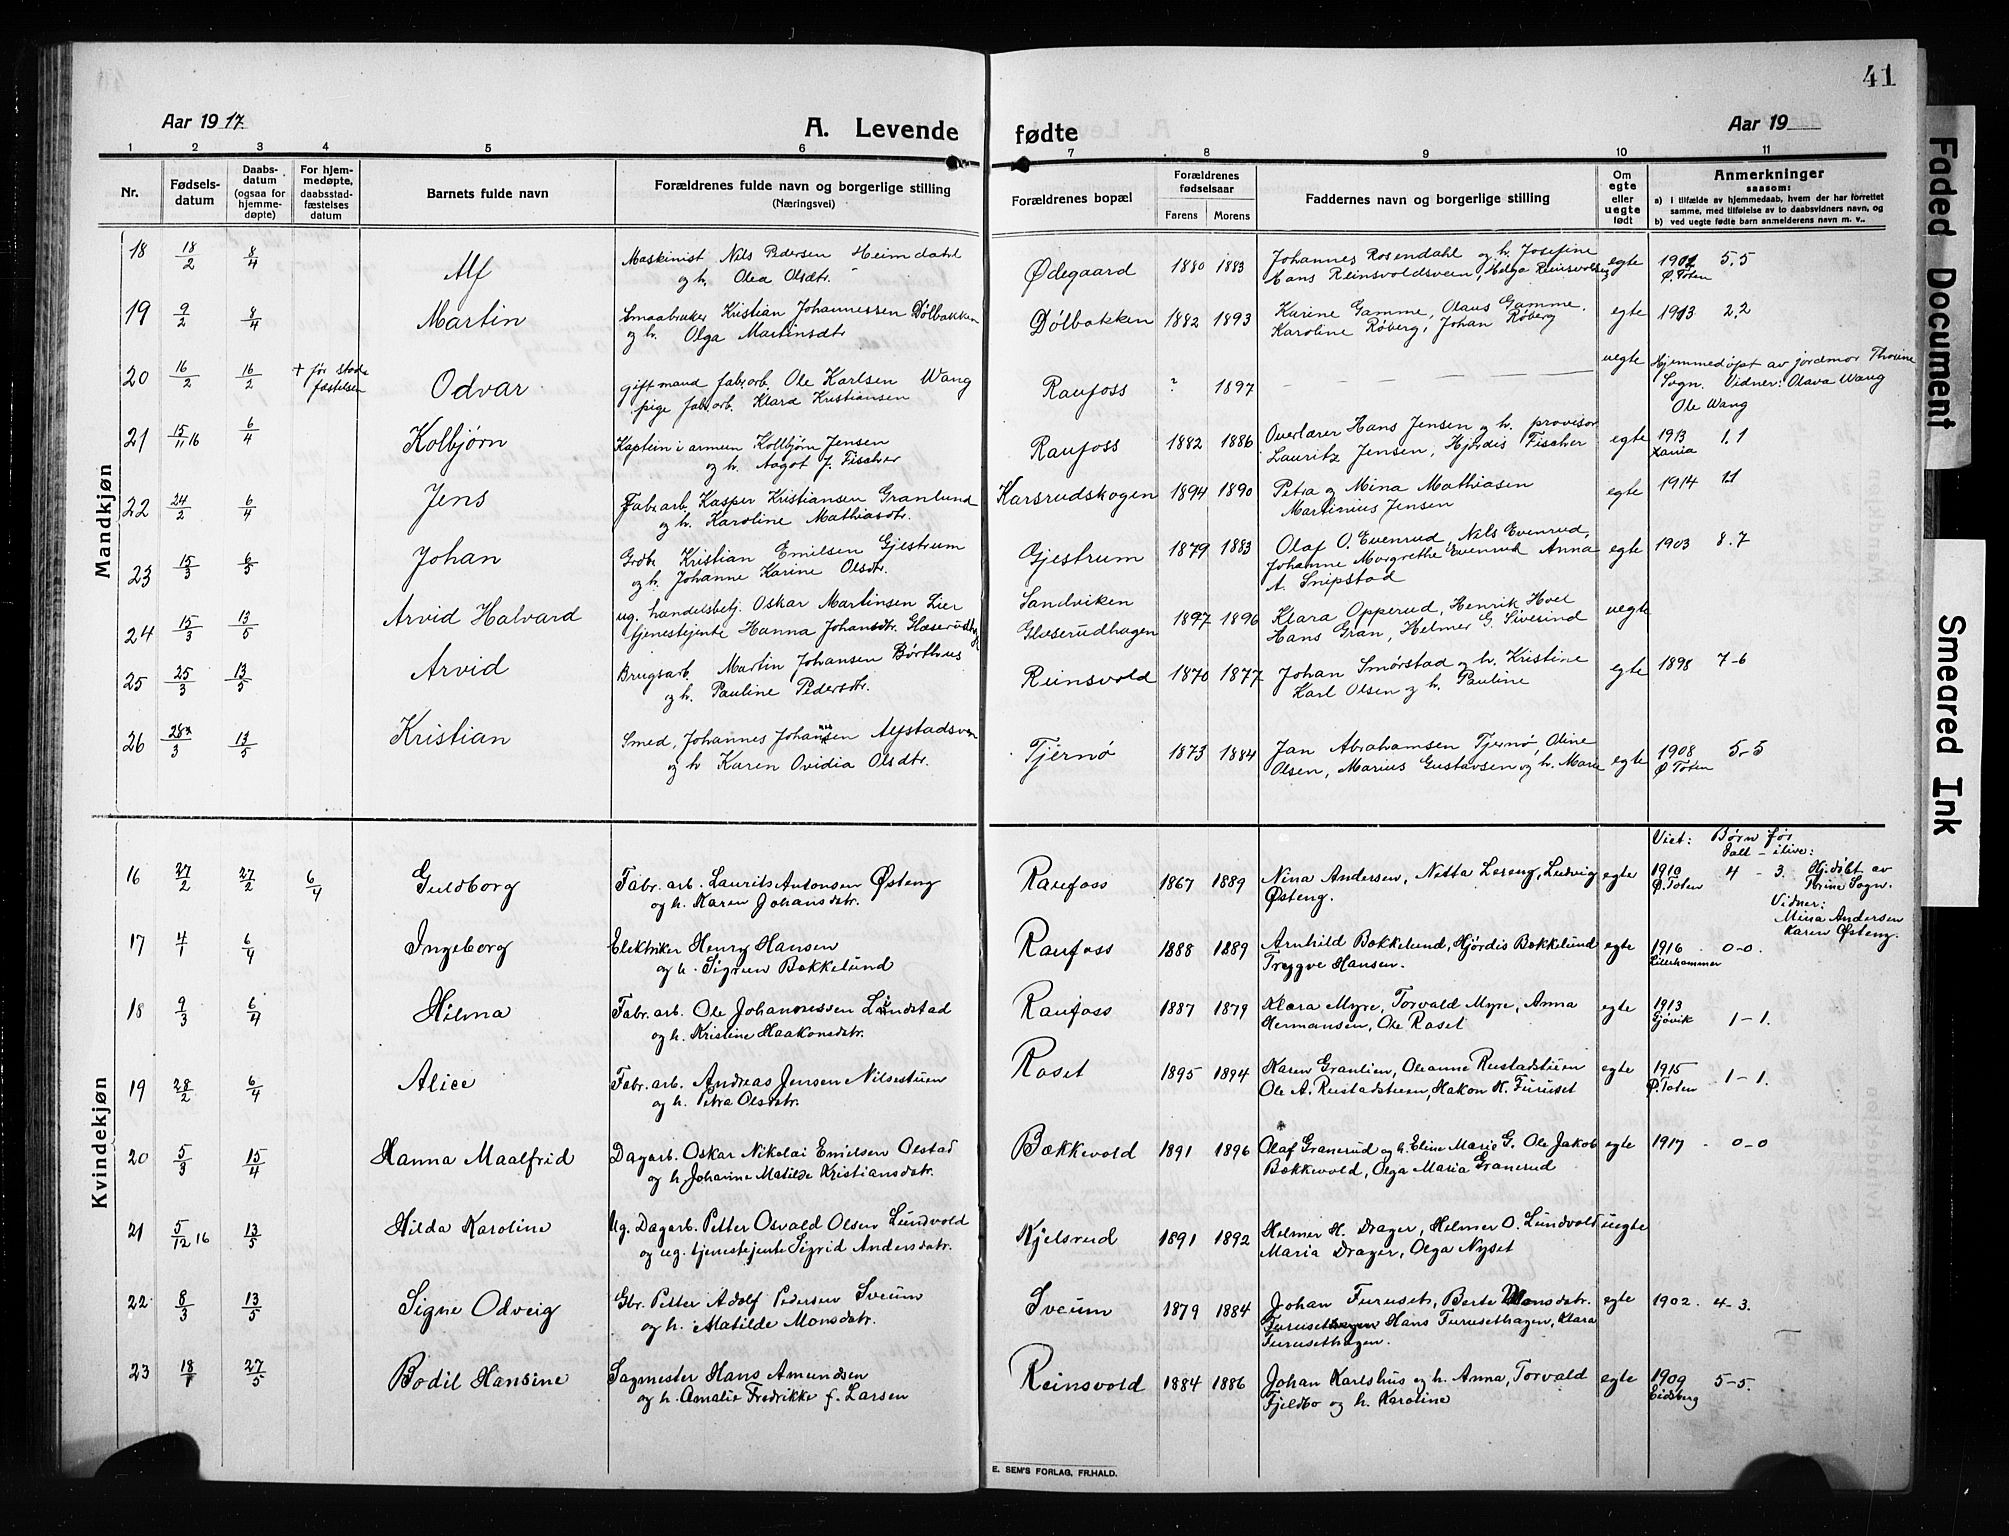 41
Aar 1917.
A. Levende fødte
Aar 19
1 2 3 4 5 6 7 8 9 10 11
Nr.
Fødsels-
datum
Daabs-
datum
(ogsaa for
hjemme-
døpte)
For hjem-
medøpte,
daabsstad-
fæstelses
datum
Barnets fulde navn
Forældrenes fulde navn og borgerlige stilling
(Næringsvei)
Forældrenes bopæl
Forældrenes
fødselsaar
Farens Morens
Faddernes navn og borgerlige stilling
Om
egte
eller
uegte
født
Anmerkninger
saasom:
a) i tilfælde av hjemmedaab, hvem der har forrettet
samme, med tilføielse av to daabsvidners navn, og
b) ved uegte fødte barn anmelderens navn m. v..
Mandkjøn
18 18/2 8/4 Alf Maskinist Nils Pedersen Heimdahl
og h. Olea Olsdtr. Ødegaard 1880 1883 Johannes Rosendahl og h. Josefine
Hans Reinsvoldsveen, Helga Reinsvoldsv. egte 1901 5,5
Ø. Toten
19 9/2 8/4 Martin Smaabruker Kristian Johannessen Dølbakken
og h. Olga Martinsdtr Dølbakken 1882 1893 Karine Gamme, Olaus Gamme.
Karoline Røberg, Johan Røberg egte 1913 2,2
20 16/2 16/2 + før stads
fæstelsen Odvar gift mand fabr.arb. Ole Karlsen Wang
pige fabr.arb. Klara Kristiansen Raufoss ? 1897 — — — uegte Hjemmedøpt av jordmor Thorine
Sogn. Vidner: Olava Wang
Ole Wang
21 15/11 16 6/4 Kolbjørn Kaptein i armeen Kollbjørn Jensen
og h. Aagot f. Fischer Raufoss 1882 1886 Overlærer Hans Jensen og h. provisor
Lauritz Jensen, Hjørdis Fischer egte 1913 1,1
Xania
22 24/2 6/4 Jens Fabr.arb. Kasper Kristiansen Granlund
og h. Karoline Mathiasdtr. Karsrudskogen 1894 1890 Petra og Mina Mathiasen
Martinius Jensen egte 1914 1.1
23 15/3 6/5 Johan Grdbr. Kristian Emilsen Gjestrum
og h. Johanne Karine Olsdtr. Gjestrum 1879 1883 Olaf O. Evenrud, Nils Evenrud,
Johanne Margrethe Evenrud Anna
A. Snipstad egte 1903 8.7
24 15/3 13/5 Arvid Halvard ug. handelsbetj. Oskar Martinsen Lier
tjenestejente Hanna Johansdtr. Glæserudhagen Sandviken
Glæserudhagen 1897 1896 Klara Opperud, Henrik Hoel
Hans Gran, Helmer G. Sivesind uegte
25 25/3 13/5 Arvid Brugsarb. Martin Johansen Børthus
og h. Pauline Pedersdtr. Reinsvold 1870 1877 Johan Smørstad og h. Kristine
Karl Olsen og h. Pauline egte 1898 7-6
26 28/3 13/5 Kristian Smed, Johannes Johansen Alfstadsveen
og h Karen Ovidia Olsdtr. Tjernø 1873 1884 Jan Abrahamsen Tjernø, Oline
Olsen, Marius Gustavsen og h. Marie egte 1908 5-5
Ø Toten
Kvindekjøn
Viet: Børn før
Tall - ilive:
16 27/2 27/2 6/4 Guldborg Fabr. arb. Laurits Antonsen Østeng
og h. Karen Johansdtr. Raufoss 1867 1889 Nina Andersen, Netta Loreng, Ludvig
Østeng. egte 1910 4 - 3. Hj.døbt av
Ø. Toten Thrine Sogn.
Vidner:
Mina Andersen
Karen Østeng.
17 4/1 6/4 Ingeborg Elektriker Henry Hansen
og h. Sigrun Bækkelund Raufoss 1888 1889 Arnhild Bækkelund, Hjørdis Bækkelund
Tryggve Hansen. egte 1916 0-0.
Lillehammer
18 9/3 6/4 Hilma Fabr. arb. Ole Johannessen Lundstad
og h. Kristine Haakonsdtr. Raufoss 1887 1879 Klara Myre, Torvald Myre, Anna
Hermansen, Ole Roset egte 1913
Gjøvik 1-1.
19 28/2 6/4 Alice Fabr. arb. Andreas Jensen Nilsestuen
og h. Petra Olsdtr. Roset 1895 1894 Karen Granlien, Oleanne Rustadstuen
Ole A. Rustadstuen, Hakon K. Furuset egte 1915
Ø. Toten 1-1.
20 5/3 15/4 Hanna Maalfrid Dagarb. Oskar Nikolai Emilsen Olstad
og h. Johanne Matilde Kristiansdtr. Bækkevold 1891 1896 Olaf Granerud og h. Eline Marie G. Ole Jakob
Bækkevold, Olga Maria Granerud egte 1917 0-0
21 5/12 16 13/5 Hilda Karoline Ug. Dagarb. Petter Osvald Olsen Lundvold
og ug. tjenestejente Sigrid Andersdatr. Kjelsrud 1891 1892 Helmer H. Drager, Helmer O. Lundvold
Maria Drager, Olga Nyset uegte
22 8/3 13/5 Signe Odveig Gbr. Petter Adolf Pedersen Sveum
og h. Matilde Monsdatr. Sveum 1879 1884 Johan Furuset, Berte Monsdatr.
Furusethagen Hans Furusethagen, Klara
Furusethagen. egte 1902. 4-3.
23 18/1 27/5 Bodil Hansine Sagmester Hans Amundsen
og h. Amalie Fredrikke f. Larsen Reinsvold 1884 1886 Johan Karlshus og h. Anna, Torvald
Fjeldbo og h. Karoline egte 1909 5-5.
Eidsberg
E. SEM'S FORLAG, FR.HALD.
Faded Document
Smeared Ink